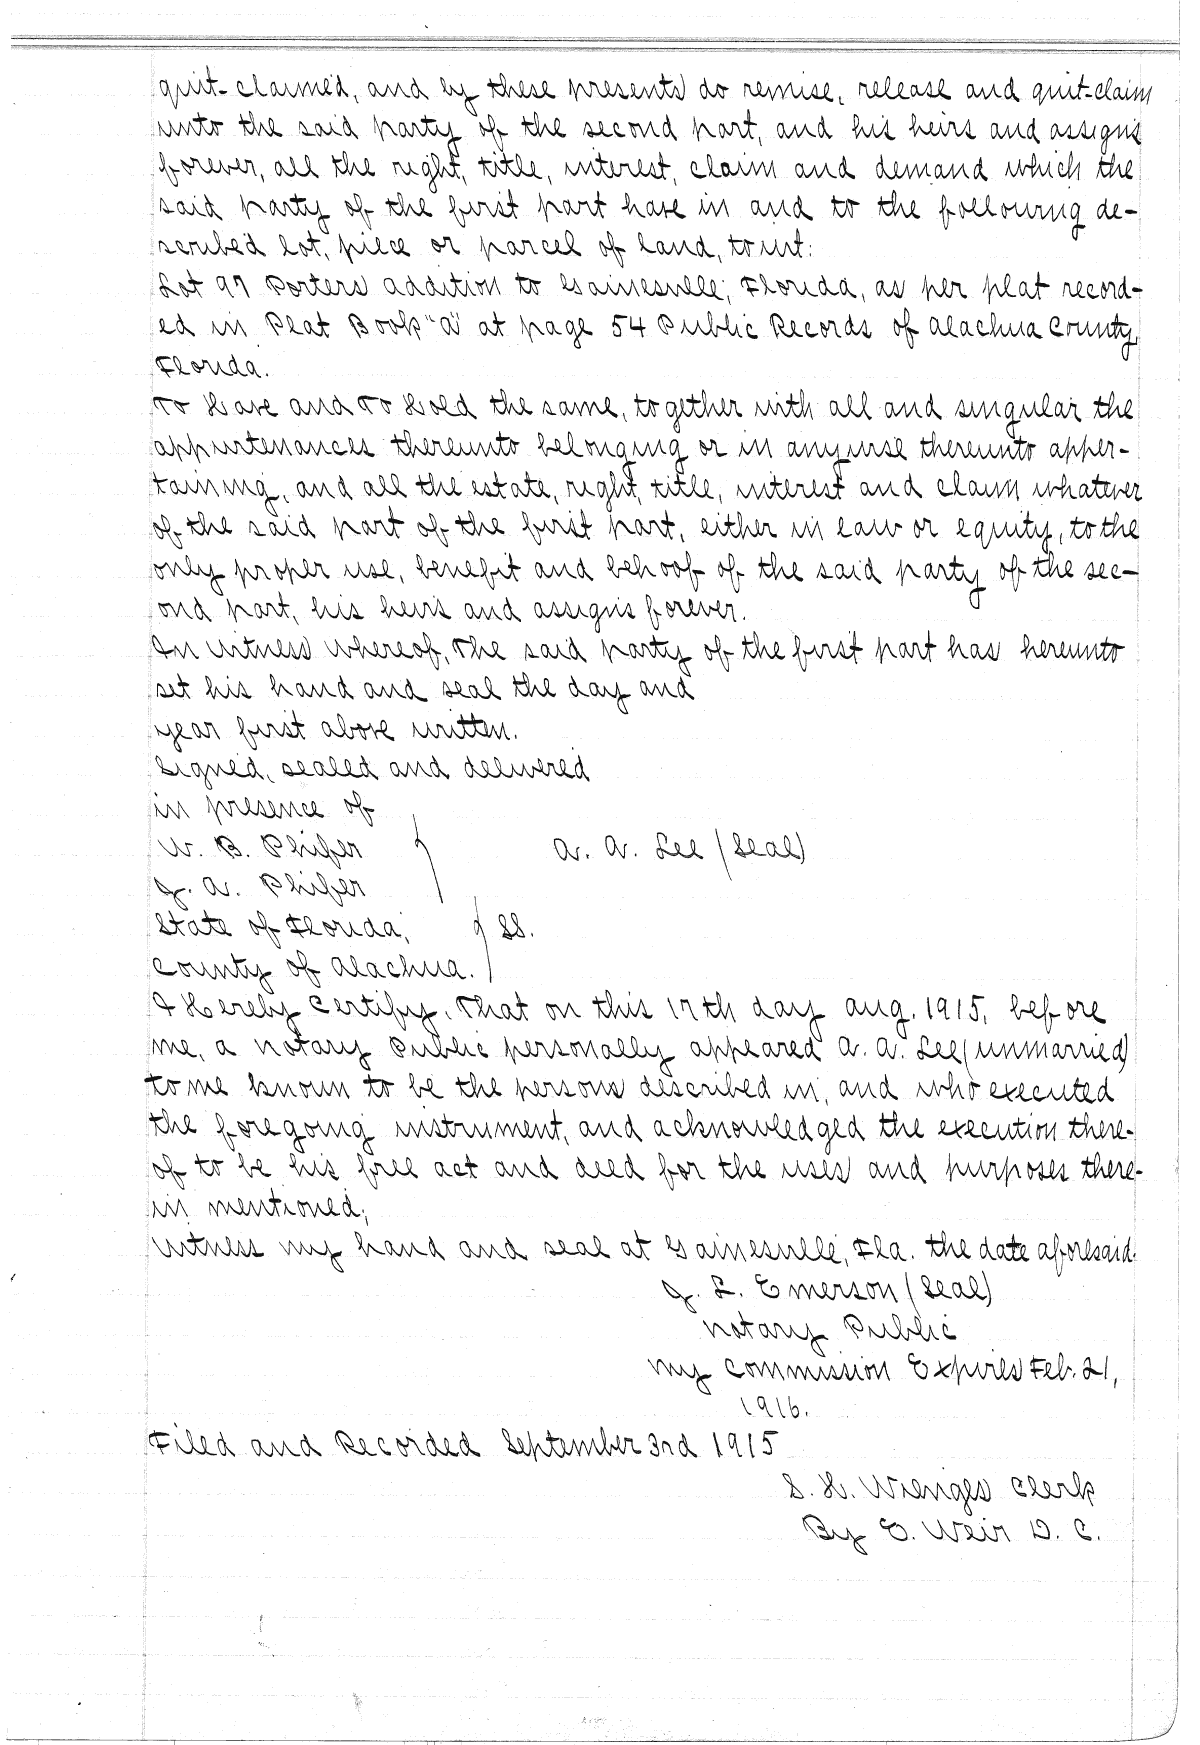 quit-claimed, and by these presents do remise, release and quit-claim
unto the said party of the second part, and his heirs and assigns
forever, all the right, title, interest, claim and demand which the
said party of the first part have in and to the following de-
scribed lot, piece or parcel of land, towit:
Lot 97 Porters addition to Gainesville, Florida, as per plat record-
ed in Plat Book "A" at page 54 Public Records of Alachua County,
Florida.
To Have and To Hold the same, together with all and singular the
appurtenances thereunto belonging or in anywise thereunto apper-
taining, and all the estate, right, title, interest and claim whatever
of the said part of the first part, either in law or equity, to the
only proper use, benefit and behoof of the said party of the sec-
ond part, his heirs and assigns forever.
In Witness Whereof, The said party of the first part has hereunto
set his hand and seal the day and
year first above written.
Signed, sealed and delivered
in presence of
W. B. Phifer
A. A. Lee (Seal)
J. A. Phifer
State of Florida, SS.
County of Alachua.
I Hereby Certify, That on this 17th day Aug. 1915, before
me, a Notary Public personally appeared A. A. Lee (unmarried)
to me known to be the persons described in, and who executed
the foregoing instrument, and acknowledged the execution there-
of to be his free act and deed for the uses and purposes there-
in mentioned;
Witness my hand and seal at Gainesville, Fla. the date aforesaid.
J. L. Emerson (Seal)
Notary Public
My Commission Expires Feb. 21,
1916.
Filed and Recorded September 3rd 1915
S. H. Wienges Clerk
By E. Weir D. C.